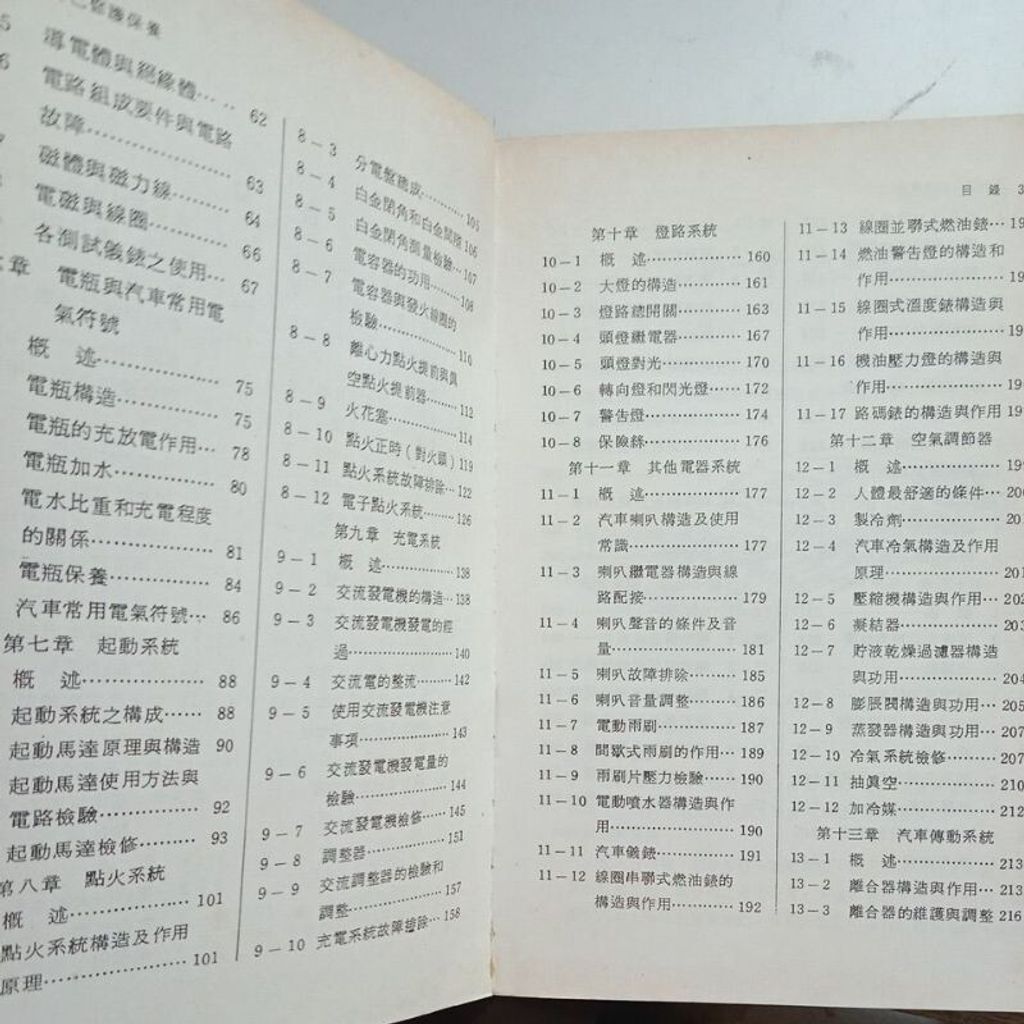 導電體與絕緣體…… 62
電路組成要件與電路
故障…………… 63
磁體與磁力線…… 64
電磁與線圈……… 66
各測試儀錶之使用… 67
章 電瓶與汽車常用電
氣符號
概 述…………… 75
電瓶構造………… 75
電瓶的充放電作用… 78
電瓶加水………… 80
電水比重和充電程度
的關係…………… 81
電瓶保養………… 84
汽車常用電氣符號… 86
第七章 起動系統
概 述…………… 88
起動系統之構成…… 88
起動馬達原理與構造 90
起動馬達使用方法與
電路檢驗………… 92
起動馬達檢修……… 93
第八章 點火系統
概 述…………… 101
點火系統構造及作用
原理……………… 101
8－3 分電盤總成……… 105
8－4 白金閉角和白金間隙 106
8－5 白金閉角測量檢驗… 107
8－6 電容器的功用…… 108
8－7 電容器與發火線圈的
檢驗…………… 110
8－8 離心力點火提前與真
空點火提前器…… 112
8－9 火花塞………… 114
8－10 點火正時（對火頭）119
8－11 點火系統故障排除… 122
8－12 電子點火系統…… 126
第九章 充電系統
9－1 概 述………… 138
9－2 交流發電機的構造… 138
9－3 交流發電機發電的經
過……………… 140
9－4 交流電的整流…… 142
9－5 使用交流發電機注意
事項…………… 143
9－6 交流發電機發電量的
檢驗…………… 144
9－7 交流發電機檢修…… 145
9－8 調整器………… 151
9－9 交流調整器的檢驗和
調整…………… 157
9－10 充電系統故障排除… 158
目 錄 3
第十章 燈路系統
10－1 概 述………… 160
10－2 大燈的構造……… 161
10－3 燈路總開關……… 163
10－4 頭燈繼電器……… 167
10－5 頭燈對光………… 170
10－6 轉向燈和閃光燈… 172
10－7 警告燈………… 174
10－8 保險絲………… 176
第十一章 其他電器系統
11－1 概 述………… 177
11－2 汽車喇叭構造及使用
常識…………… 177
11－3 喇叭繼電器構造與線
路配接………… 179
11－4 喇叭聲音的條件及音
量……………… 181
11－5 喇叭故障排除…… 185
11－6 喇叭音量調整…… 186
11－7 電動雨刷……… 187
11－8 間歇式雨刷的作用… 189
11－9 雨刷片壓力檢驗… 190
11－10 電動噴水器構造與作
用……………… 190
11－11 汽車儀錶……… 191
11－12 線圈串聯式燃油錶的
構造與作用……… 192
11－13 線圈並聯式燃油錶… 19
11－14 燃油警告燈的構造和
作用…………… 19
11－15 線圈式溫度錶構造與
作用…………… 19
11－16 機油壓力燈的構造與
作用…………… 19
11－17 路碼錶的構造與作用 19
第十二章 空氣調節器
12－1 概 述………… 19
12－2 人體最舒適的條件… 200
12－3 製冷劑………… 20
12－4 汽車冷氣構造及作用
原理…………… 201
12－5 壓縮機構造與作用… 202
12－6 凝結器………… 203
12－7 貯液乾燥過濾器構造
與功用………… 204
12－8 膨脹閥構造與功用… 205
12－9 蒸發器構造與功用… 207
12－10 冷氣系統檢修…… 207
12－11 抽眞空………… 210
12－12 加冷媒………… 212
第十三章 汽車傳動系統
13－1 概 述………… 213
13－2 離合器構造與作用… 213
13－3 離合器的維護與調整 216